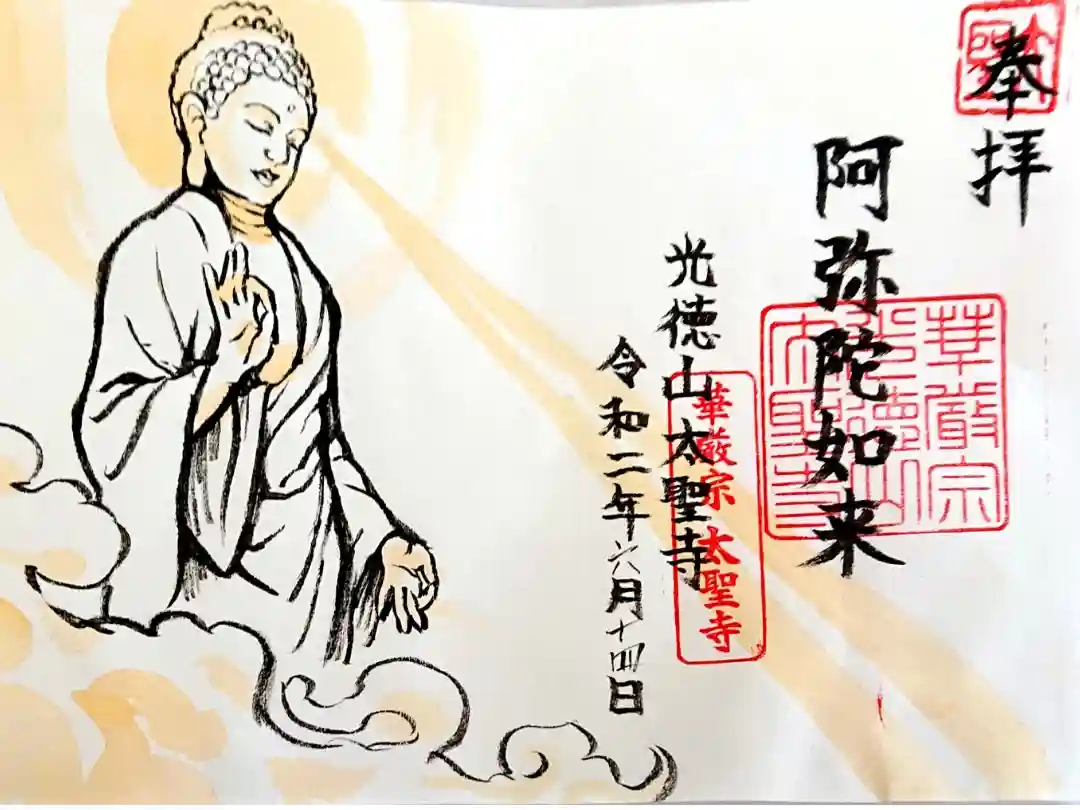 奉拝
阿弥陀如来
華厳宗
光徳山
太聖寺
光徳山太聖寺
華厳宗 太聖寺
令和二年六月十四日